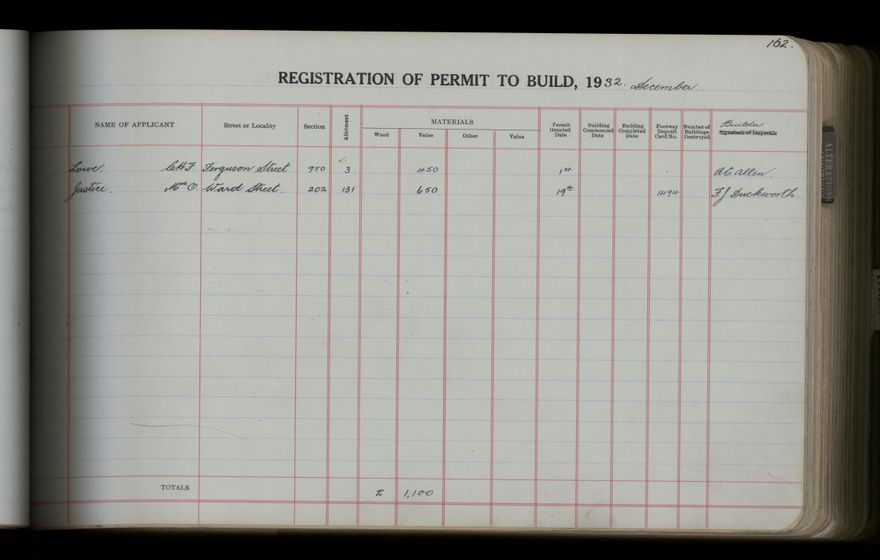 162.
REGISTRATION OF PERMIT TO BUILD, 1932. December.
NAME OF APPLICANT Street or Locality Section Allotment MATERIALS Wood Value Other Value Permit Granted Date Building Commenced Date Building Completed Date Footway Deposit Card No. Number of Buildings Destroyed Builder Signature of Inspector
Lowe. C.H.F. Ferguson Street 950 3 450 1st. A E Allen.
Justice. Mrs O. Ward Street. 202 131 650 19th. 1494 F J Duckworth
TOTALS 2 1,100
ALTERATION